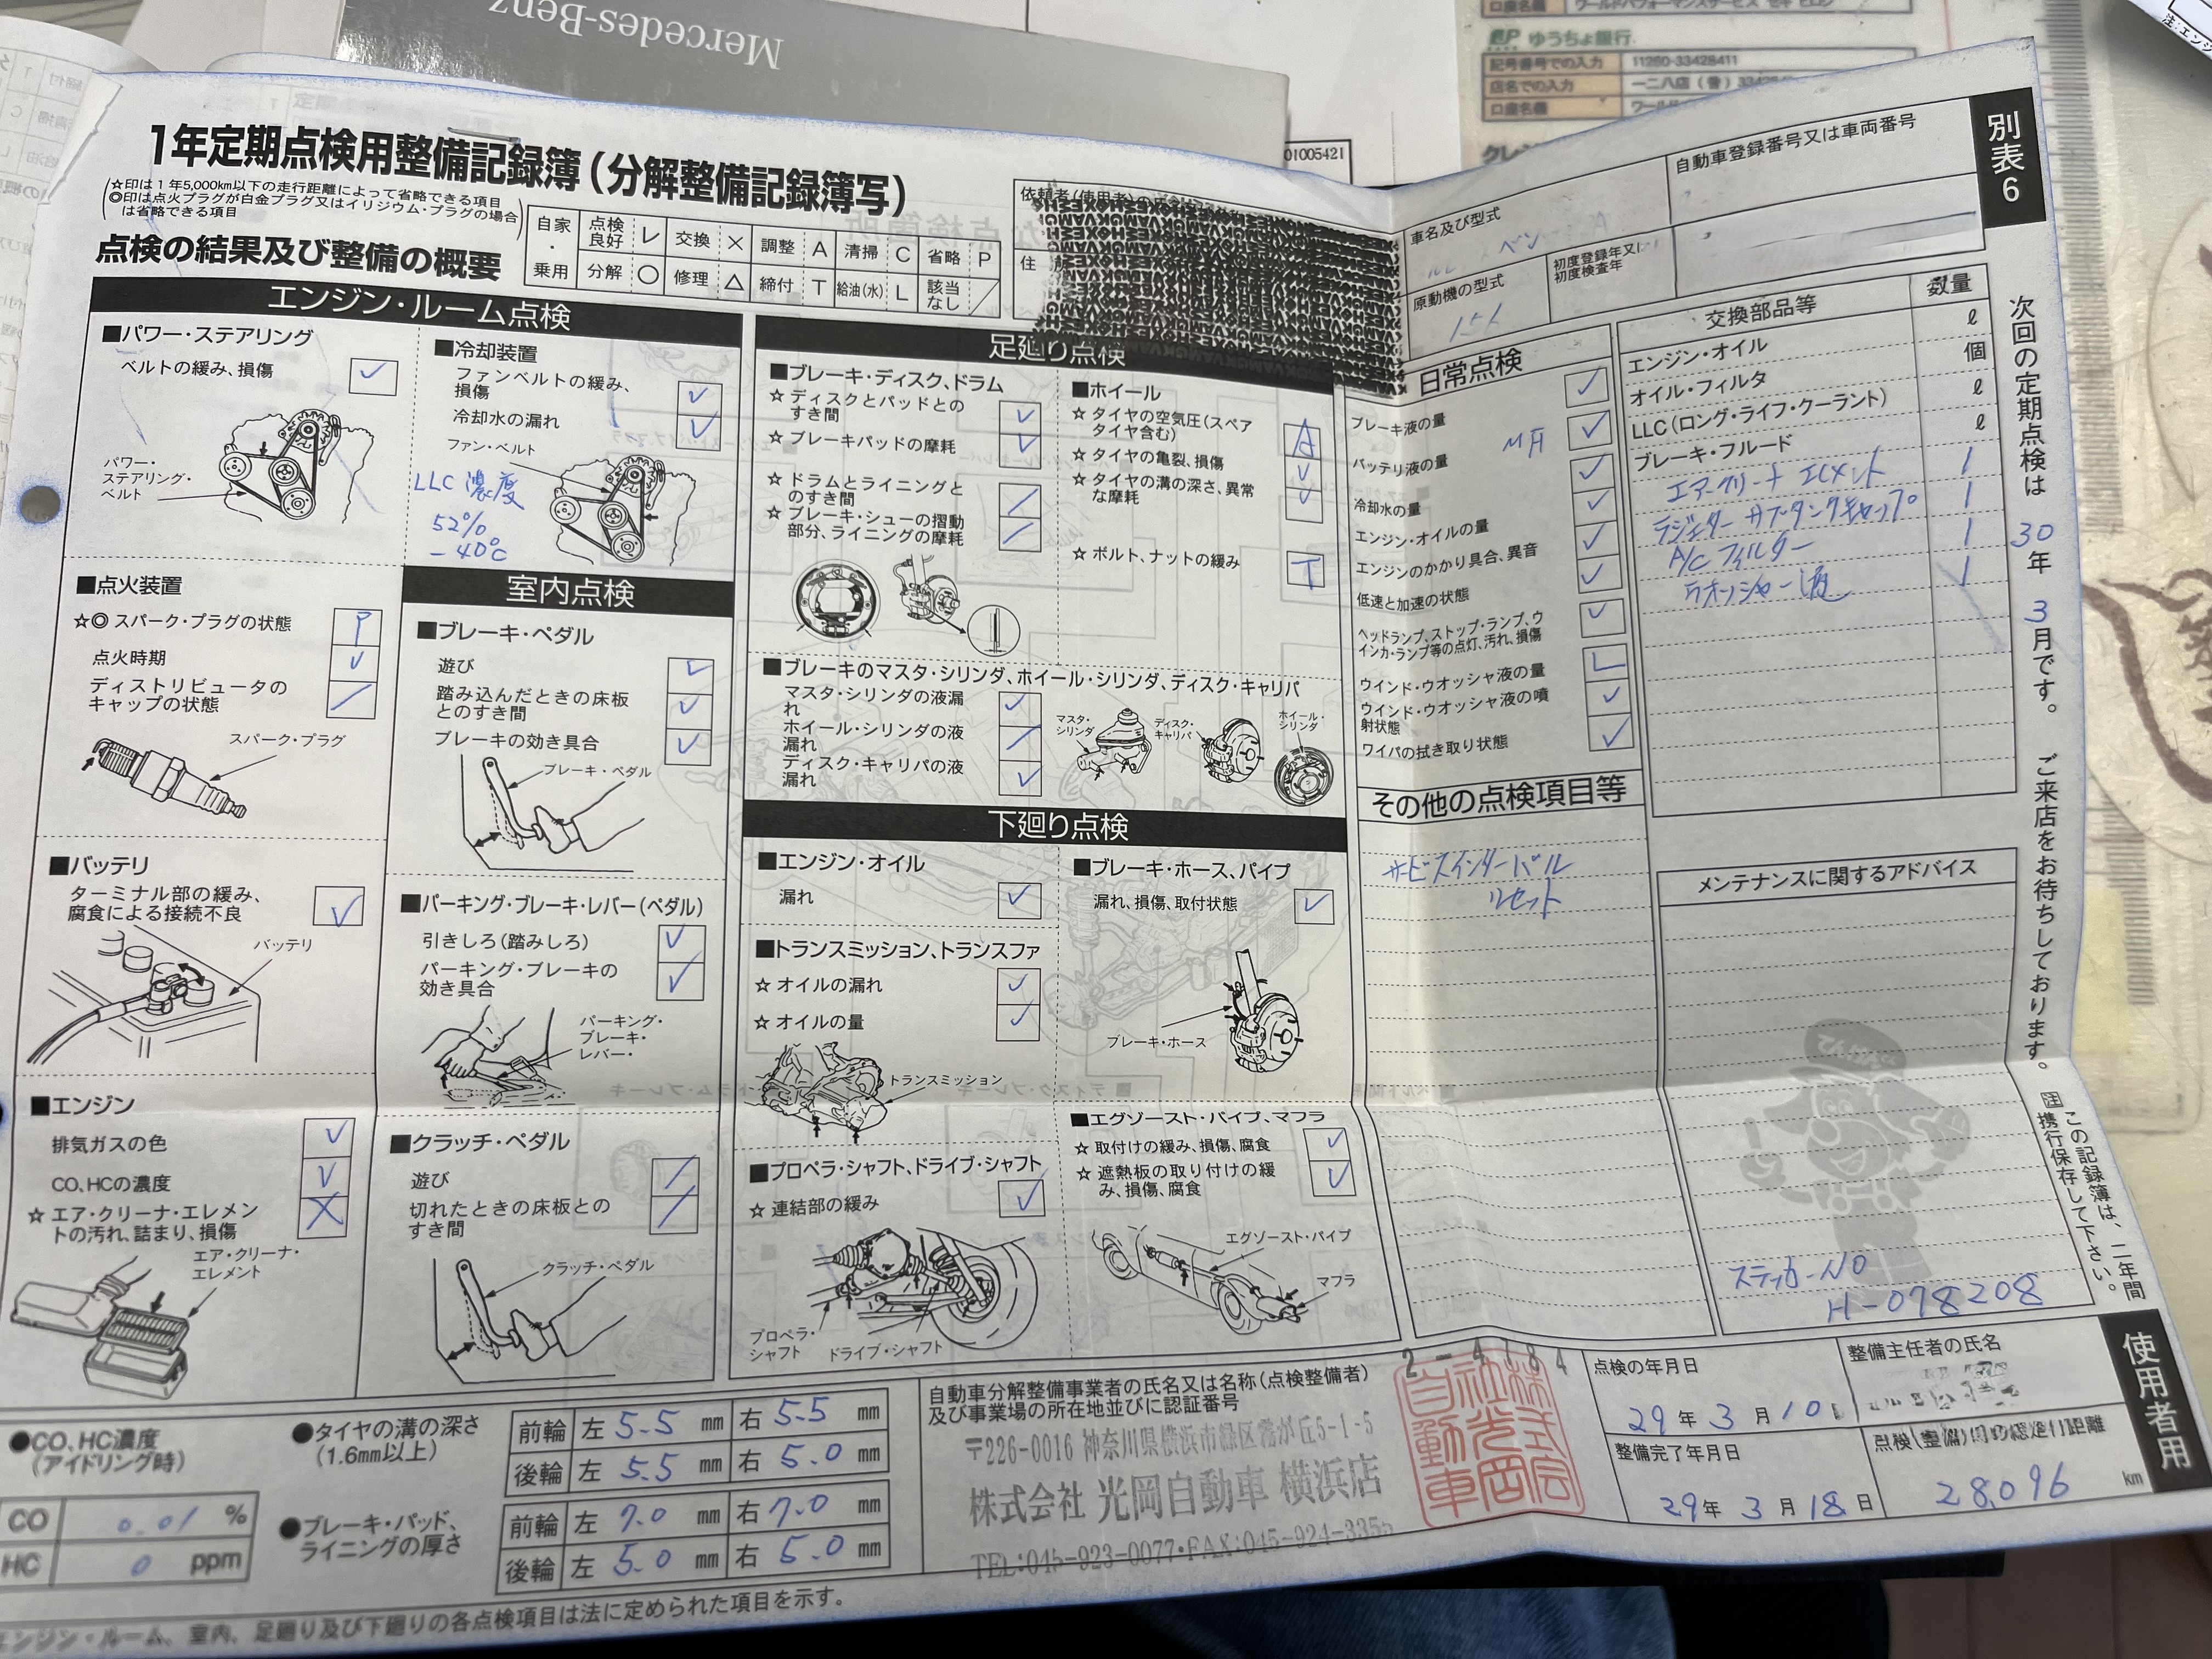 Mercedes-Benz
口座名義 ワールドパフォーマンスサービス セキ ヒロシ
ゆうちょ銀行
記号番号での入力 11260-33428411
店名での入力 一二八店(普)
口座名義
01005421
別表6
1年定期点検用整備記録簿(分解整備記録簿写)
☆印は1年5,000km以下の走行距離によって省略できる項目
◎印は点火プラグが白金プラグ又はイリジウム・プラグの場合は省略できる項目
点検の結果及び整備の概要
自家・乗用
点検良好 レ 交換 × 調整 A 清掃 C 省略 P
分解 ○ 修理 △ 締付 T 給油(水) L 該当なし ／
依頼者(使用者)の
住
車名及び型式
自動車登録番号又は車両番号
原動機の型式
156
初度登録年又は初度検査年
エンジン・ルーム点検
■パワー・ステアリング
ベルトの緩み、損傷
パワー・ステアリング・ベルト
■冷却装置
ファンベルトの緩み、損傷
冷却水の漏れ
ファン・ベルト
LLC 濃度
52%
-40℃
■点火装置
☆◎ スパーク・プラグの状態 P
点火時期
ディストリビュータのキャップの状態
スパーク・プラグ
■バッテリ
ターミナル部の緩み、腐食による接続不良
バッテリ
■エンジン
排気ガスの色
CO、HCの濃度
☆ エア・クリーナ・エレメントの汚れ、詰まり、損傷 ×
エア・クリーナ・エレメント
室内点検
■ブレーキ・ペダル
遊び
踏み込んだときの床板とのすき間
ブレーキの効き具合
ブレーキ・ペダル
■パーキング・ブレーキ・レバー(ペダル)
引きしろ(踏みしろ)
パーキング・ブレーキの効き具合
パーキング・ブレーキ・レバー・
■クラッチ・ペダル
遊び
切れたときの床板とのすき間
クラッチ・ペダル
足廻り点検
■ブレーキ・ディスク、ドラム
☆ ディスクとパッドとのすき間
☆ ブレーキパッドの摩耗
☆ ドラムとライニングとのすき間
☆ ブレーキ・シューの摺動部分、ライニングの摩耗
■ホイール
☆ タイヤの空気圧(スペアタイヤ含む) A
☆ タイヤの亀裂、損傷
☆ タイヤの溝の深さ、異常な摩耗
☆ ボルト、ナットの緩み T
■ブレーキのマスタ・シリンダ、ホイール・シリンダ、ディスク・キャリパ
マスタ・シリンダの液漏れ
ホイール・シリンダの液漏れ
ディスク・キャリパの液漏れ
マスタ・シリンダ
ディスク・キャリパ
ホイール・シリンダ
下廻り点検
■エンジン・オイル
漏れ
■ブレーキ・ホース、パイプ
漏れ、損傷、取付状態
ブレーキ・ホース
■トランスミッション、トランスファ
☆ オイルの漏れ
☆ オイルの量
トランスミッション
■プロペラ・シャフト、ドライブ・シャフト
☆ 連結部の緩み
プロペラ・シャフト
ドライブ・シャフト
■エグゾースト・パイプ、マフラ
☆ 取付けの緩み、損傷、腐食
☆ 遮熱板の取り付けの緩み、損傷、腐食
エグゾースト・パイプ
マフラ
日常点検
ブレーキ液の量
バッテリ液の量 MF
冷却水の量
エンジン・オイルの量
エンジンのかかり具合、異音
低速と加速の状態
ヘッドランプ、ストップ・ランプ、ウインカ・ランプ等の点灯、汚れ、損傷
ウインド・ウオッシャ液の量 L
ウインド・ウオッシャ液の噴射状態
ワイパの拭き取り状態
その他の点検項目等
サービスインターバル
リセット
交換部品等 数量
エンジン・オイル ℓ
オイル・フィルタ 個
LLC(ロング・ライフ・クーラント) ℓ
ブレーキ・フルード ℓ
エアークリーナ エレメント 1
ラジエター サブタンクキャップ 1
A/C フィルター 1
ウオッシャー液 1
メンテナンスに関するアドバイス
ステッカーNO
H-078208
次回の定期点検は 30年 3月です。 ご来店をお待ちしております。
注 この記録簿は、二年間携行保存して下さい。
使用者用
●CO、HC濃度(アイドリング時)
CO 0.01 %
HC 0 ppm
●タイヤの溝の深さ(1.6mm以上)
前輪 左 5.5 mm 右 5.5 mm
後輪 左 5.5 mm 右 5.0 mm
●ブレーキ・パッド、ライニングの厚さ
前輪 左 7.0 mm 右 7.0 mm
後輪 左 5.0 mm 右 5.0 mm
自動車分解整備事業者の氏名又は名称(点検整備者)及び事業場の所在地並びに認証番号
2-4184
〒226-0016 神奈川県横浜市緑区霧が丘5-1-5
株式会社 光岡自動車 横浜店
TEL:045-923-0077・FAX:045-924-3355
株式会社光岡自動車
点検の年月日
29年 3月 10日
整備主任者の氏名
整備完了年月日
29年 3月 18日
点検(整備)時の総走行距離
28,096 km
エンジン・ルーム、室内、足廻り及び下廻りの各点検項目は法に定められた項目を示す。